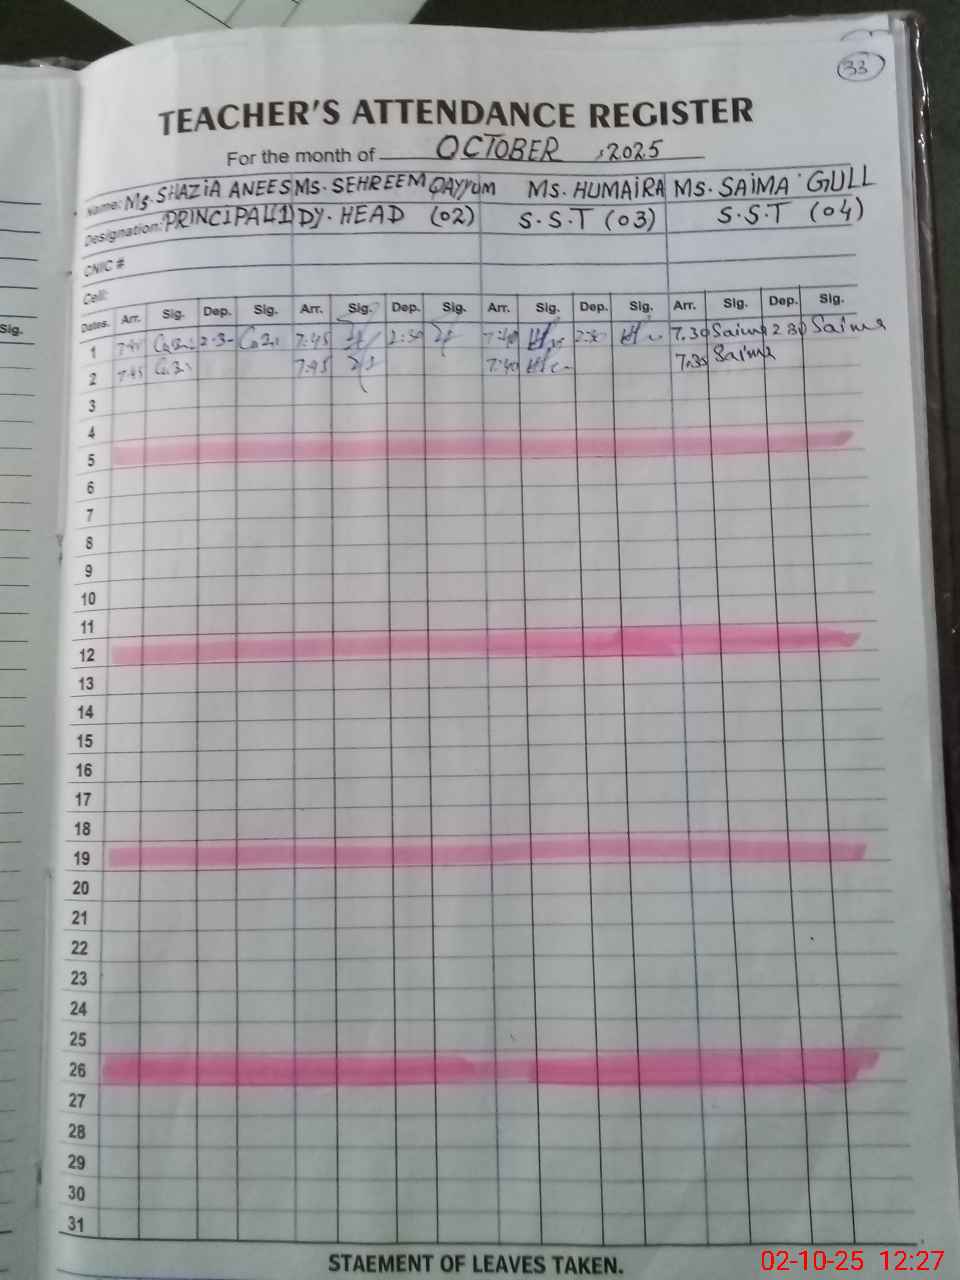 33
TEACHER'S ATTENDANCE REGISTER
For the month of OCTOBER, 2025
Name: Ms. SHAZiA ANEES Ms. SEHREEM QAYYUM Ms. HUMAIRA Ms. SAiMA GULL
Designation: PRINCIPAL DY. HEAD (02) S.S.T (03) S.S.T (04)
CNIC #
Cell:
Dates. Arr. Sig. Dep. Sig. Arr. Sig. Dep. Sig. Arr. Sig. Dep. Sig. Arr. Sig. Dep. Sig.
1 7:45 7:45 2:30 7:40 2:30 7.30 Saima 2.30 Saima
2 7:45 7:45 7:40 7.30 Saima
3
4
5
6
7
8
9
10
11
12
13
14
15
16
17
18
19
20
21
22
23
24
25
26
27
28
29
30
31
STAEMENT OF LEAVES TAKEN.
Sig.
02-10-25 12:27